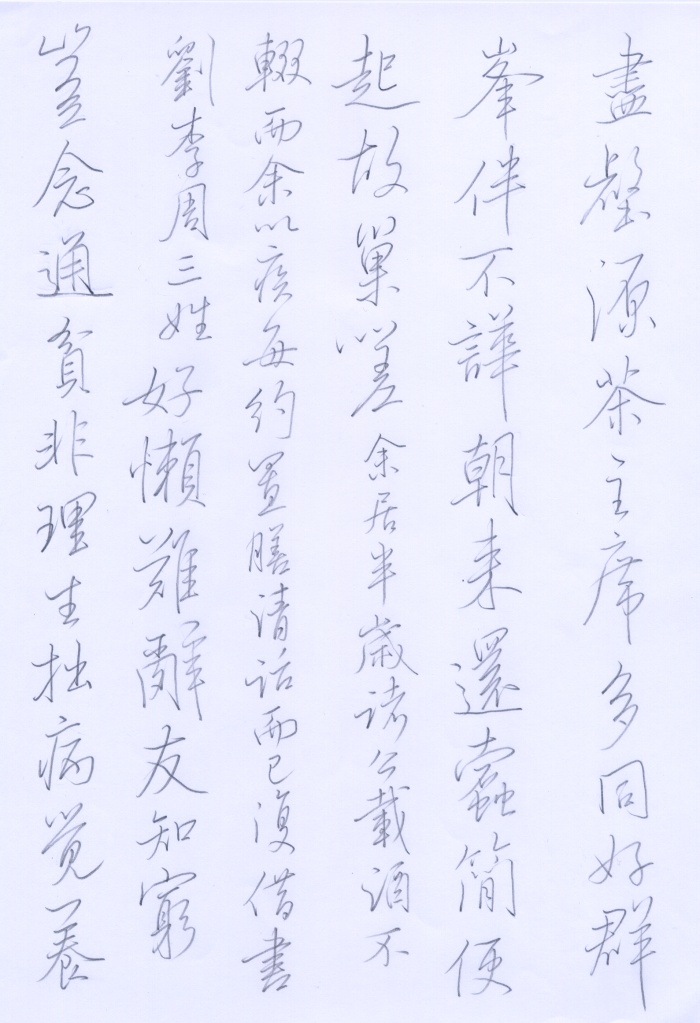 盡壑源茶主席多同好群
峯伴不譁朝来還蠹簡便
起故巢嗟余居半歲諸公載酒不
輟而余以疾每約置膳清話而已復借書
劉李周三姓好懶難辭友知窮
豈念通貧非理生拙病覺養